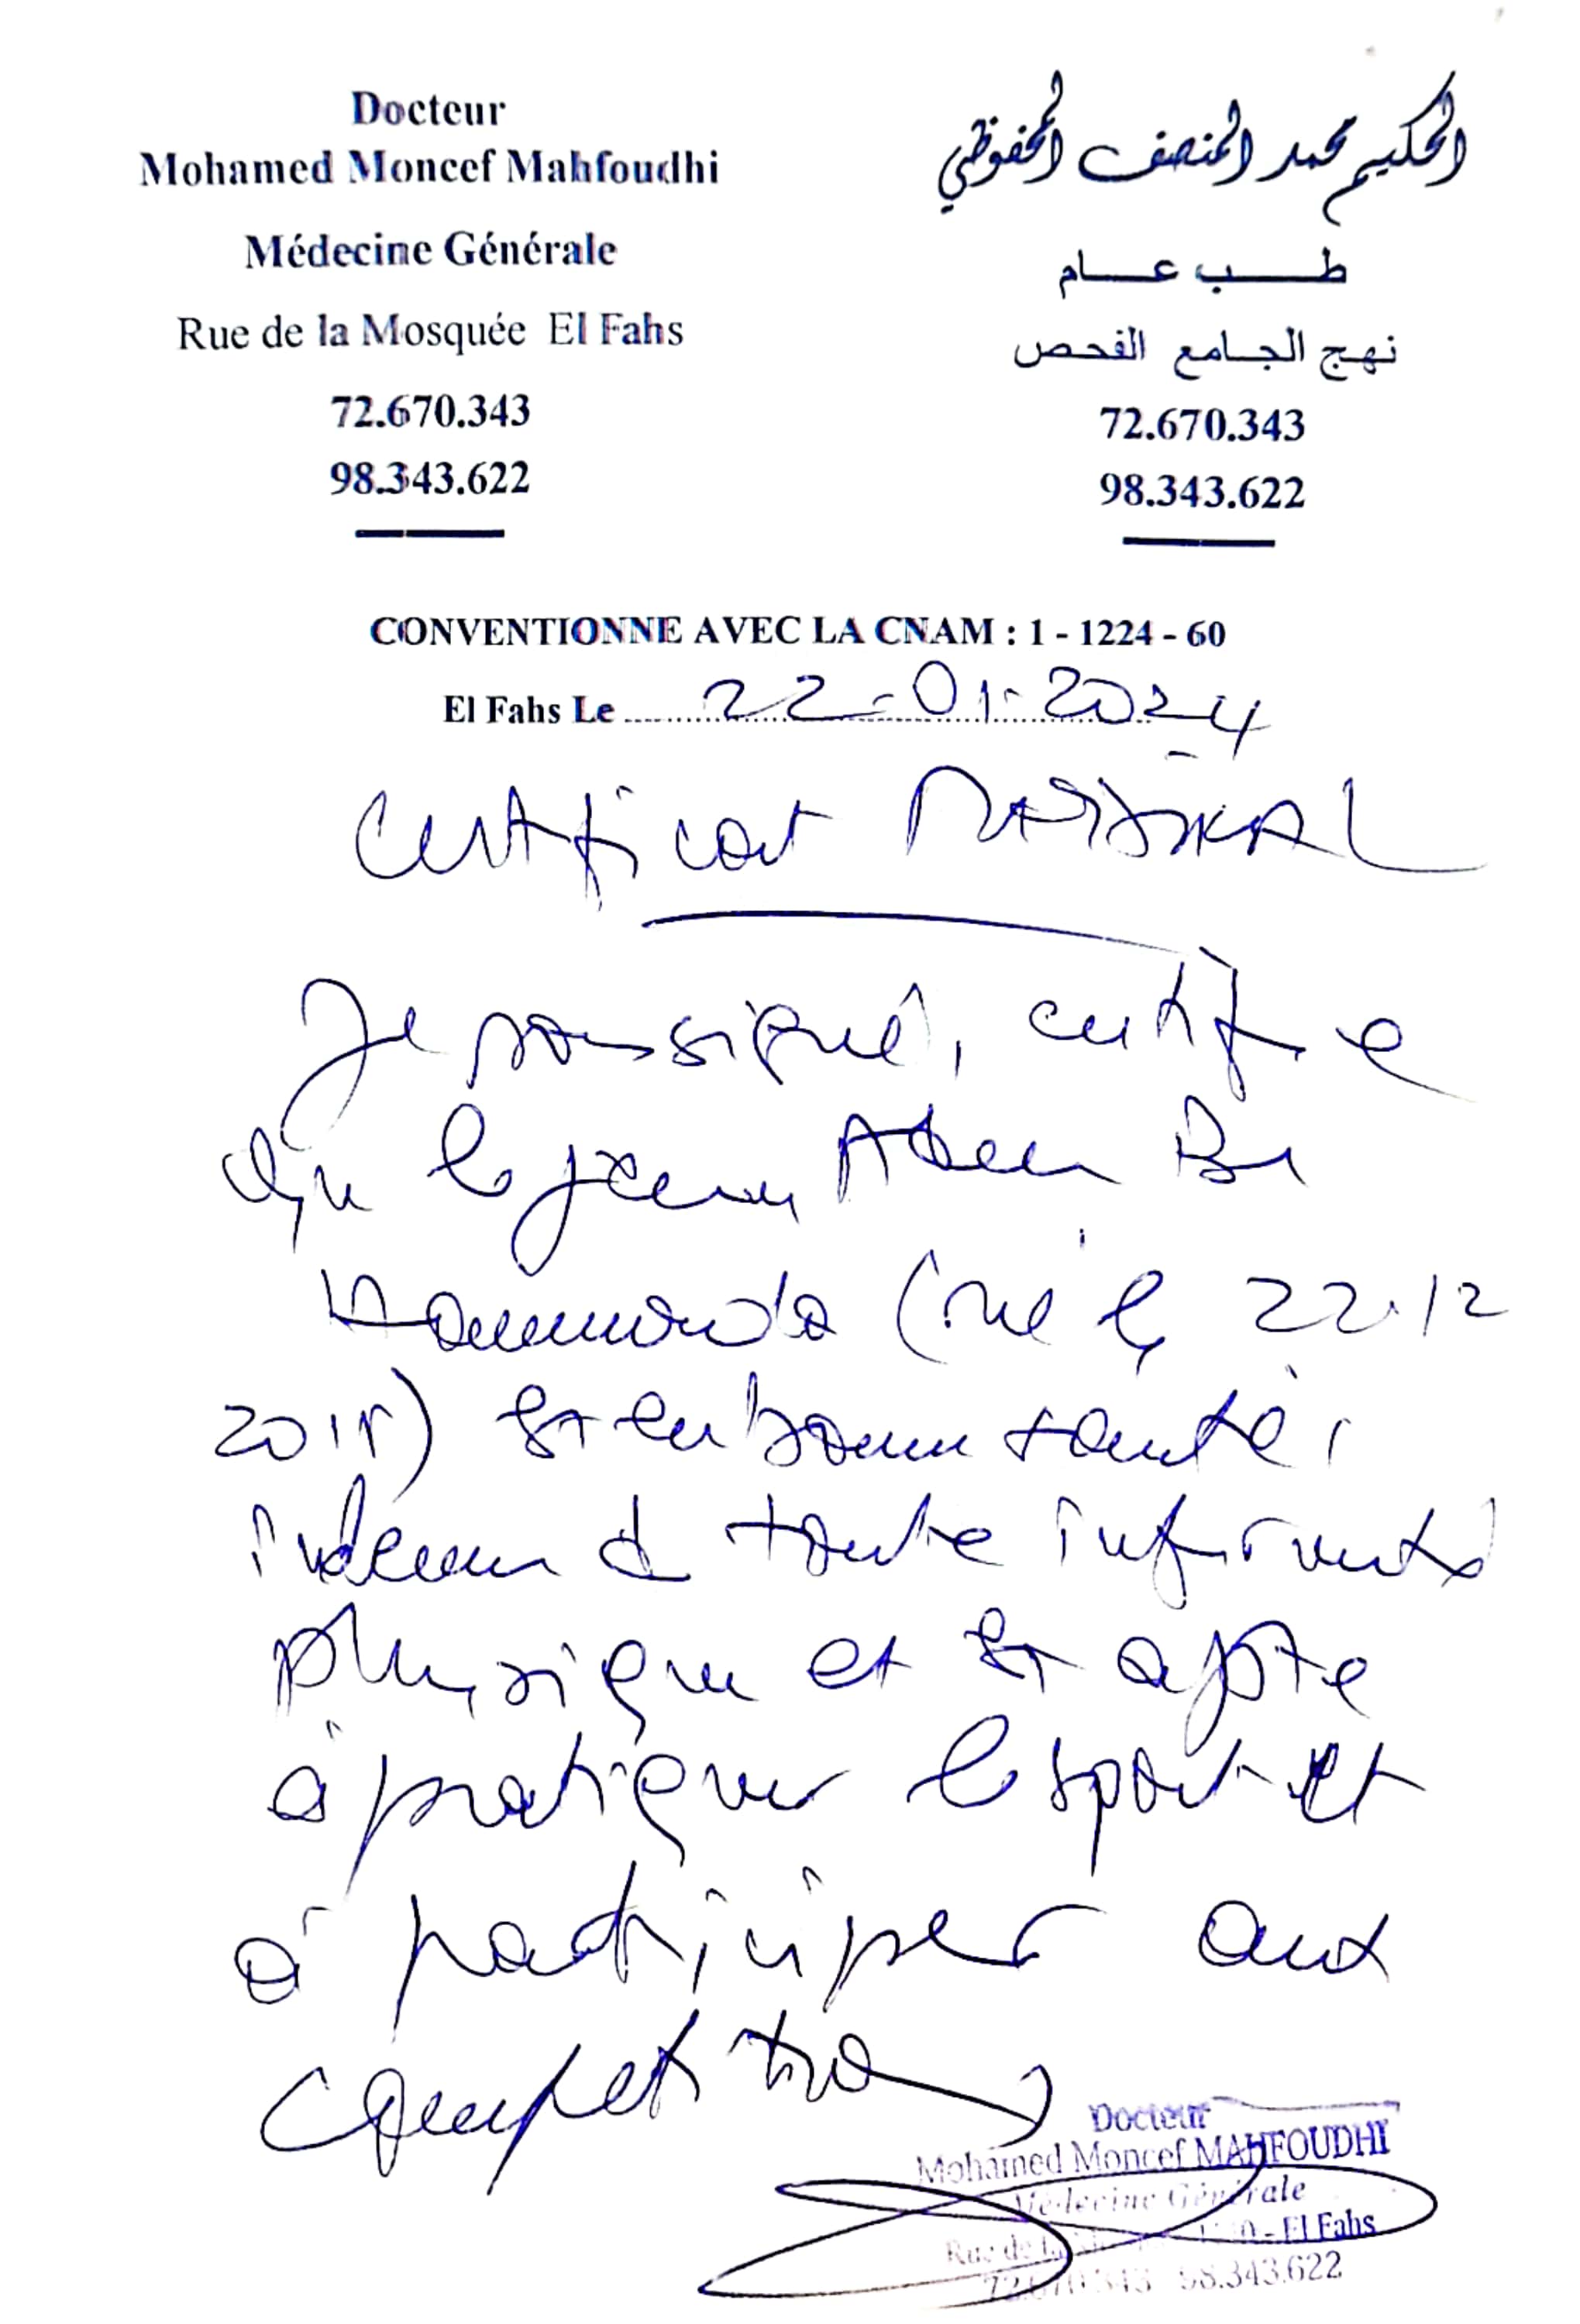 Docteur
Mohamed Moncef Mahfoudhi
Médecine Générale
Rue de la Mosquée El Fahs
72.670.343
98.343.622
الحكيم محمد المنصف المحفوظي
طب عام
نهج الجامع الفحص
72.670.343
98.343.622
CONVENTIONNE AVEC LA CNAM : 1 - 1224 - 60
El Fahs Le 22-01-2024
Certificat MEDICAL
Je soussigné, certifie
que le jeune Adem Ben
Hammouda (né le 22.12
est en bonne santé,
indemne de toute infirmité
physique et est apte
à pratiquer le sport et
à participer aux
competitions
Docteur
Mohamed Moncef MAHFOUDHI
Médecine Générale
Rue de la - El Fahs
72.670.343 98.343.622